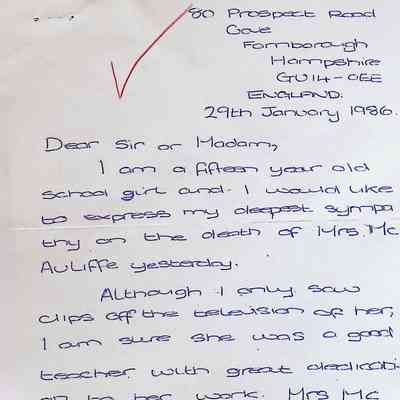 80 Prospect Road
Cove
Farnborough
Hampshire
GU14-OEE
ENGLAND.
29th January 1986.
Dear Sir or Madam,
I am a fifteen year old
school girl and I would like
to express my deepest sympa
thy on the death of Mrs. Mc
Auliffe yesterday.
Although I only saw
clips off the television of her,
I am sure she was a good
teacher with great dedicati-
on to her work. Mrs Mc